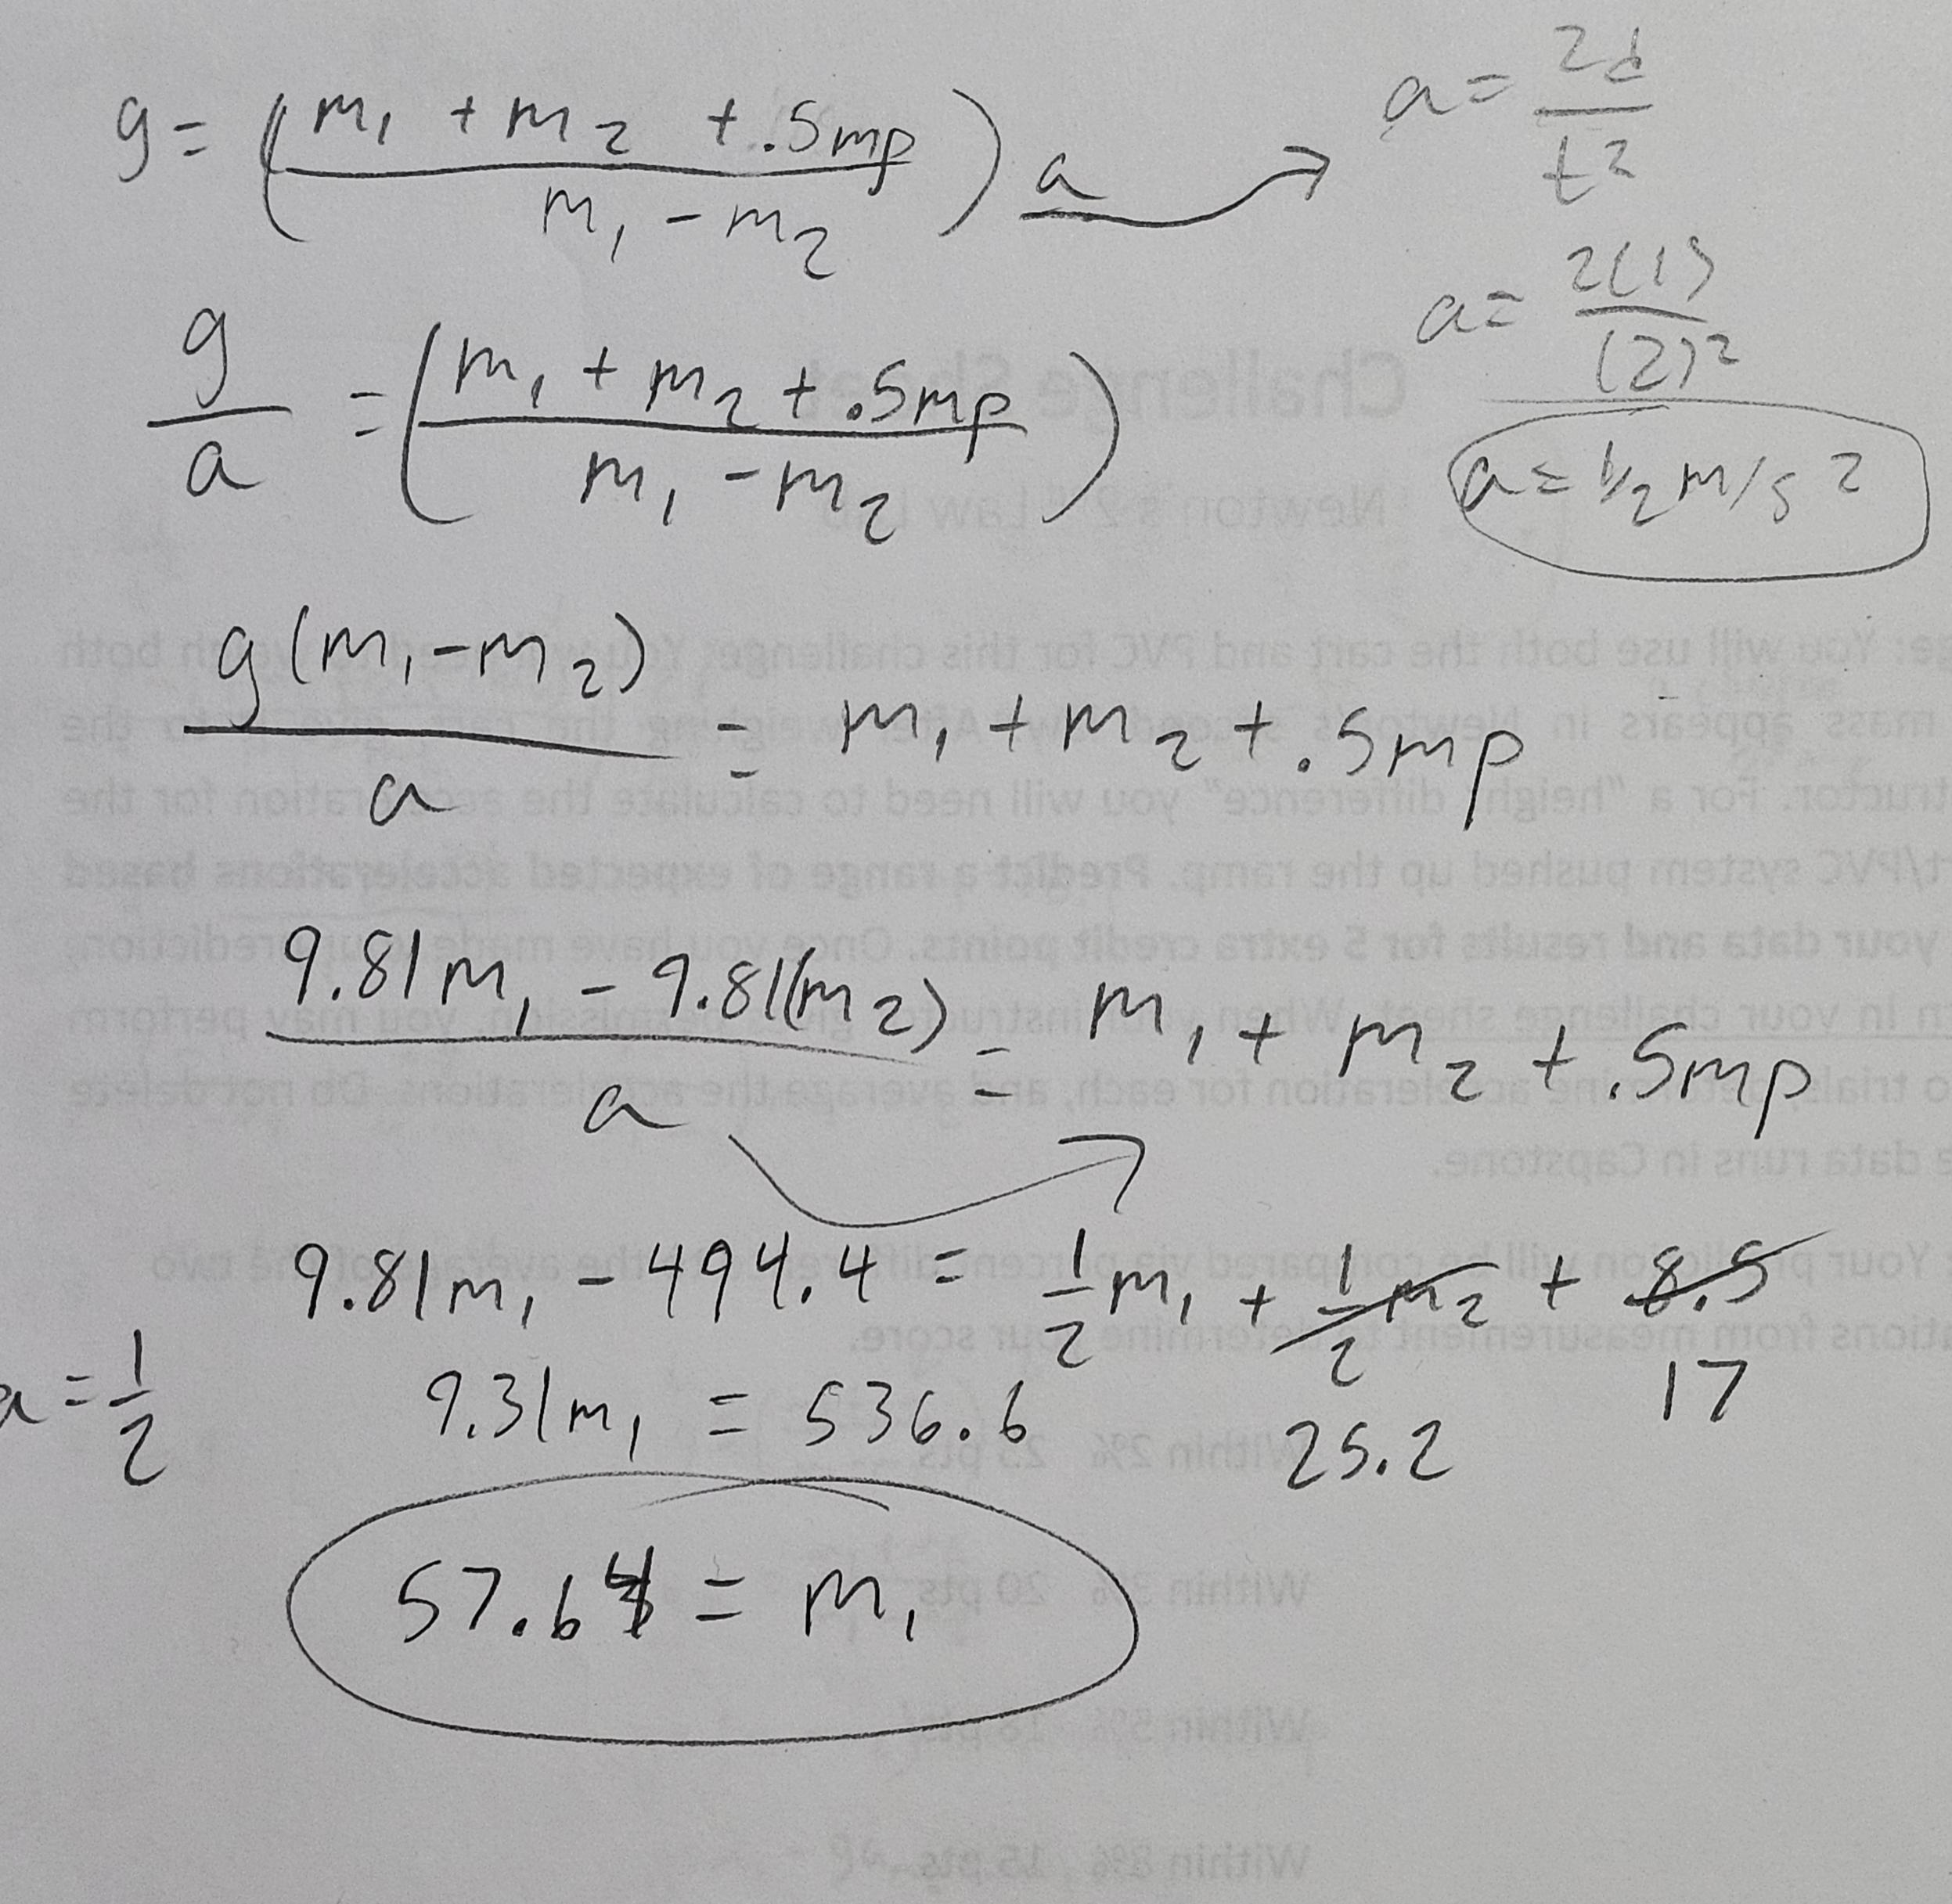 g = (m₁ + m₂ + .5mp / m₁ - m₂) a → a = 2d / t²
a = 2(1) / (2)²
g / a = (m₁ + m₂ + .5mp / m₁ - m₂)
a = 1/2 m/s²
g(m₁ - m₂) / a = m₁ + m₂ + .5mp
9.81m₁ - 9.81(m₂) / a = m₁ + m₂ + .5mp
9.81m₁ - 494.4 = 1/2 m₁ + 1/2 m₂ + 8.5
17
a = 1/2
9.31m₁ = 536.6
25.2
57.64 = m₁